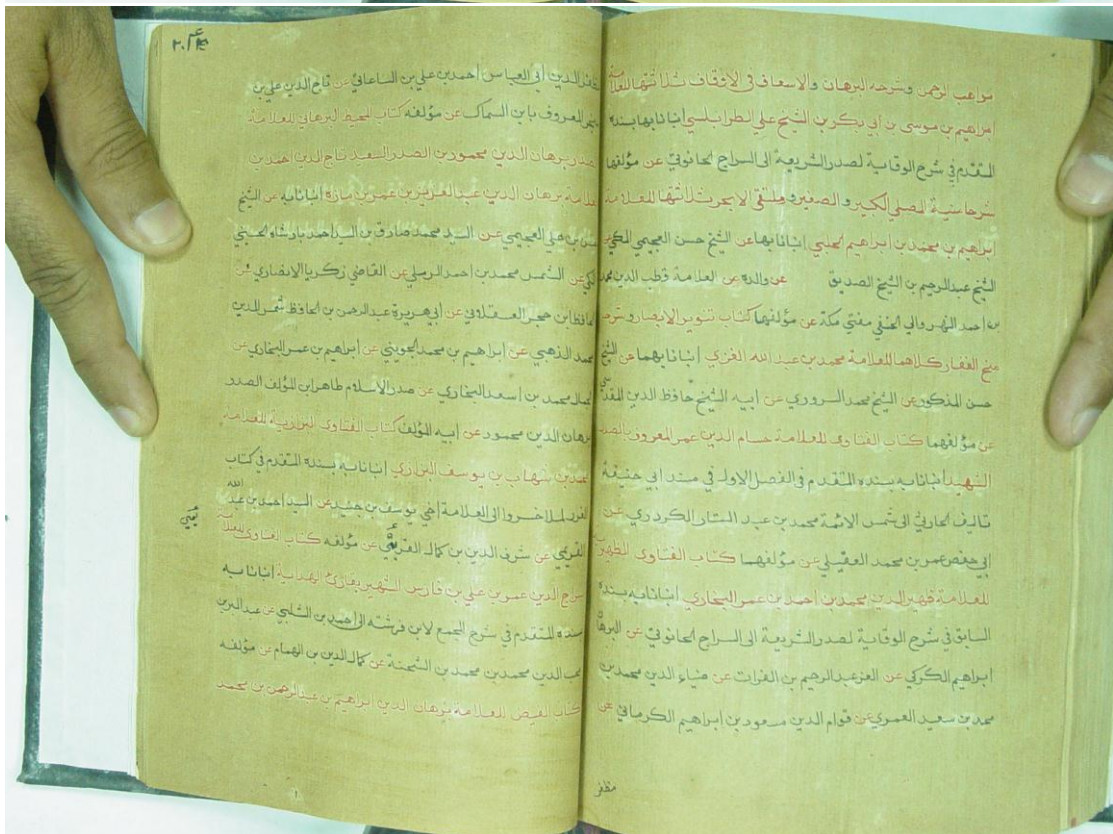 مواهب الرحمن وشرحه البرهان والاسعاف في الاوقاف ثلاثتها للعلامة
ابراهيم بن موسى بن ابي بكر بن الشيخ علي الطرابلسي انبانا بها بسنده
المتقدم في شرح الوقاية لصدر الشريعة الى السراج الحانوتي عن مؤلفها
شرحا منية المصلي الكبير و الصغير و ملتقى الابحر ثلاثتها للعلامة
ابراهيم بن محمد بن ابراهيم الحلبي انبانا بها عن الشيخ حسن العجيمي المكي عن
الشيخ عبد الرحيم بن الشيخ الصديق عن والده عن العلامة قطب الدين محمد
بن احمد النهروالي الحنفي مفتي مكة عن مؤلفها كتاب تنوير الابصار وشرحه
منح الغفار كلاهما للعلامة محمد بن عبد الله الغزي انبانا بهما عن الشيخ
حسن المذكور عن الشيخ محمد السروري عن ابيه الشيخ حافظ الدين المقدسي
عن مؤلفهما كتاب الفتاوى للعلامة حسام الدين عمر المعروف بالصدر
الشهيد انبانا به بسنده المتقدم في الفصل الاول في مسند ابي حنيفة
تاليف الحارثي الى شمس الائمة محمد بن عبد الستار الكردري عن
ابي حفص عمر بن محمد العقيلي عن مؤلفهما كتاب الفتاوى الظهيرية
للعلامة ظهير الدين محمد بن احمد بن عمر البخاري انبانا به بسنده
السابق في شرح الوقاية لصدر الشريعة الى السراج الحانوتي عن البرهان
ابراهيم الكركي عن العز عبد الرحيم بن الفرات عن ضياء الدين محمد بن
محمد بن سعيد العمري عن قوام الدين مسعود بن ابراهيم الكرماني عن
مظفر
مظفر الدين ابي العباس احمد بن علي بن الساعاتي عن تاج الدين علي بن
المعروف بابن السماك عن مؤلفه كتاب المحيط البرهاني للعلامة
برهان الدين محمود بن الصدر السعيد تاج الدين احمد بن
برهان الدين عبد العزيز بن عمر بن مازه انبانا به عن الشيخ
حسن بن علي العجيمي عن السيد محمد صادق بن السيد احمد بادشاه الحسيني
المكي عن الشمس محمد بن احمد الرملي عن القاضي زكريا الانصاري عن
الحافظ ابن حجر العسقلاني عن ابي هريرة عبد الرحمن بن الحافظ شمس الدين
محمد الذهبي عن ابراهيم بن محمد الجويني عن ابراهيم بن عمر البخاري عن
محمد بن اسعد البخاري عن صدر الاسلام طاهر ابن المؤلف الصدر
برهان الدين محمود عن ابيه المؤلف كتاب الفتاوى البزازية للعلامة
محمد بن شهاب بن يوسف البزازي انبانا به بسنده المتقدم في كتاب
الغرر لملا خسرو الى العلامة اخي يوسف بن جنيد عن السيد احمد بن عبد الله
القريمي عن شرف الدين بن كمال القريمي عن مؤلفه كتاب الفتاوى للعلامة
سراج الدين عمر بن علي بن فارس الشهير بقارئ الهداية انبانا به
بسنده المتقدم في شرح المجمع لابن فرشته الى احمد بن الشلبي عن عبد البر بن
محب الدين محمد بن محمد بن الشحنة عن كمال الدين بن الهمام عن مؤلفه
كتاب الفيض للعلامة برهان الدين ابراهيم بن عبد الرحمن بن محمد